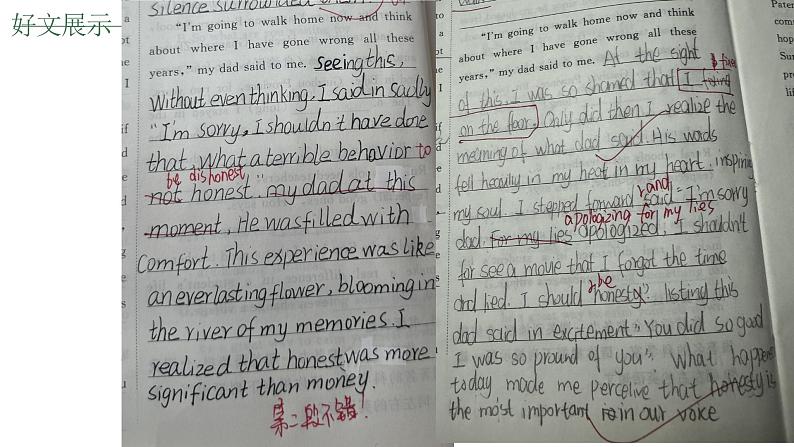 好文展示
silence surrounded them.
"I'm going to walk home now and think
about where I have gone wrong all these
years," my dad said to me. Seeing this,
Without even thinking, I said in sadly
"I'm sorry, I shouldn't have done
that, what a terrible behavior to
be dishonest
not honest." my dad at this
moment, He was filled with
comfort. This experience was like
an everlasting flower, blooming in
the river of my memories. I
realized that honest was more
significant than money.
第二段不错!
"I'm going to walk home now and think
about where I have gone wrong all these
years," my dad said to me. At the sight
of this, I was so shamed that I
on the Only did then I realize the
meaning of what dad said. His words
fell heavily in my heat in my heart, inspiring
my soul. I stepped forward and said "I'm sorry
apologizing for my lies
dad. For my lies apologized, I shouldn't
for see a movie that I forgot the time
and lied. I should be honesty". listing this
dad said in excitement "You did so good
I was so pround of you". What happens
today made me perceive that honesty is
the most important in our voke
Pater
com
hop
Sur
pr
li